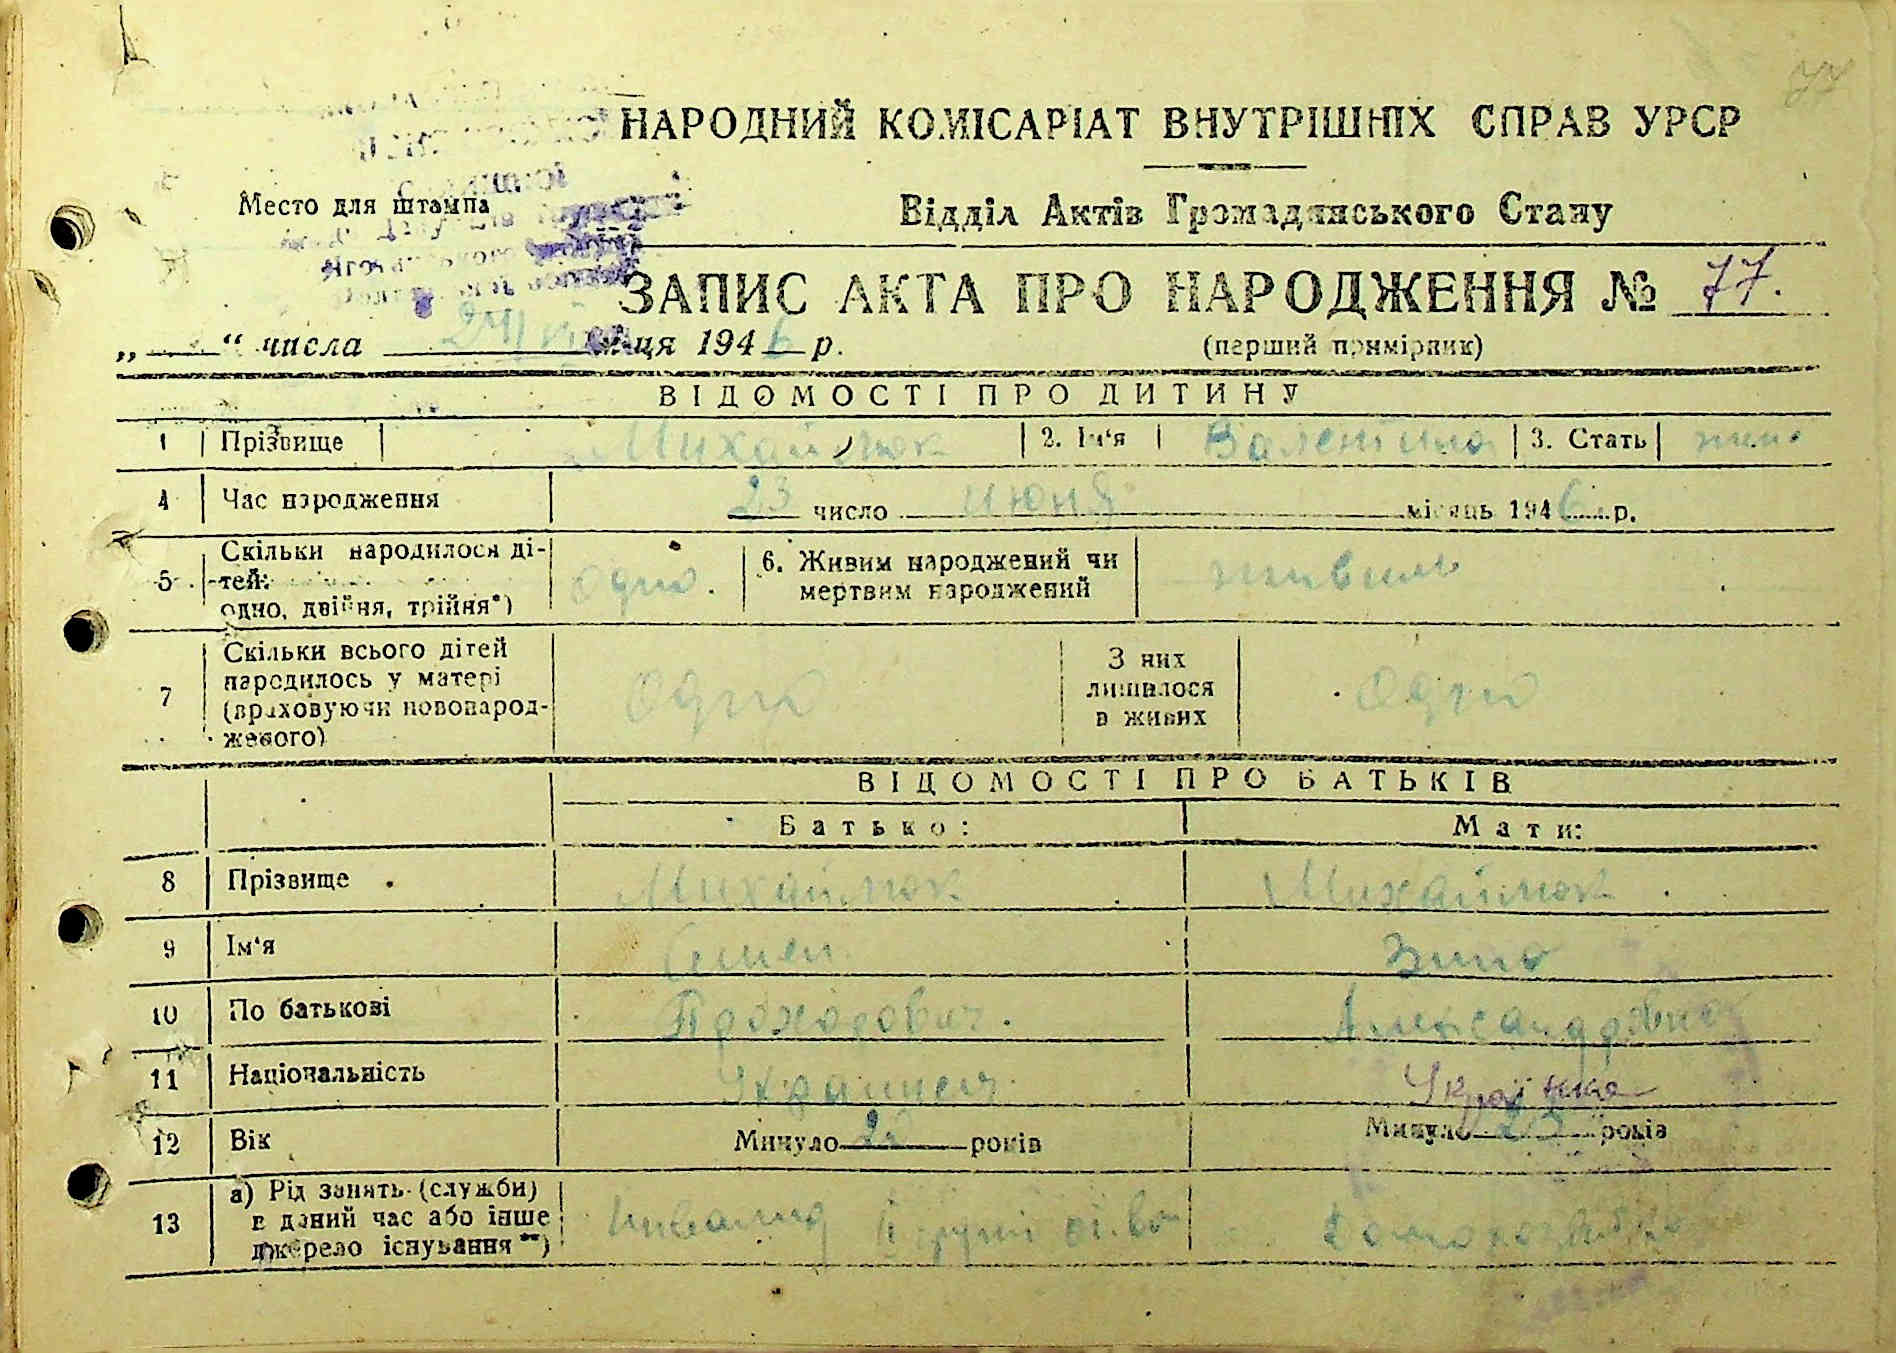 77
НАРОДНИЙ КОМІСАРІАТ ВНУТРІШНІХ СПРАВ УРСР
Место для штампа
Відділ Актів Громадянського Стану
ЗАПИС АКТА ПРО НАРОДЖЕННЯ № 77.
„ “ числа місяця 1946 р.
(перший примірник)
ВІДОМОСТІ ПРО ДИТИНУ
1 Прізвище Михайлюк 2. Ім‘я Валентина 3. Стать жен.
4 Час народження 23 число июня місяць 1946 р.
5 Скільки народилося ді-
тей:
одно, двійня, трійня*) одно. 6. Живим народжений чи
мертвим народжений живым
7 Скільки всього дітей
народилось у матері
(враховуючи новонарод-
женого) одно З них
лишилося
в живих одно
ВІДОМОСТІ ПРО БАТЬКІВ
Батько: Мати:
8 Прізвище Михайлюк Михайлюк
9 Ім‘я Семен Зина
10 По батькові Прохорович. Александровна
11 Національність Украинец Українка
12 Вік Минуло років Минуло 23 років
13 а) Рід занять (служби)
в даний час або інше
джерело існування**) Инвалид II групи Домохозяйка